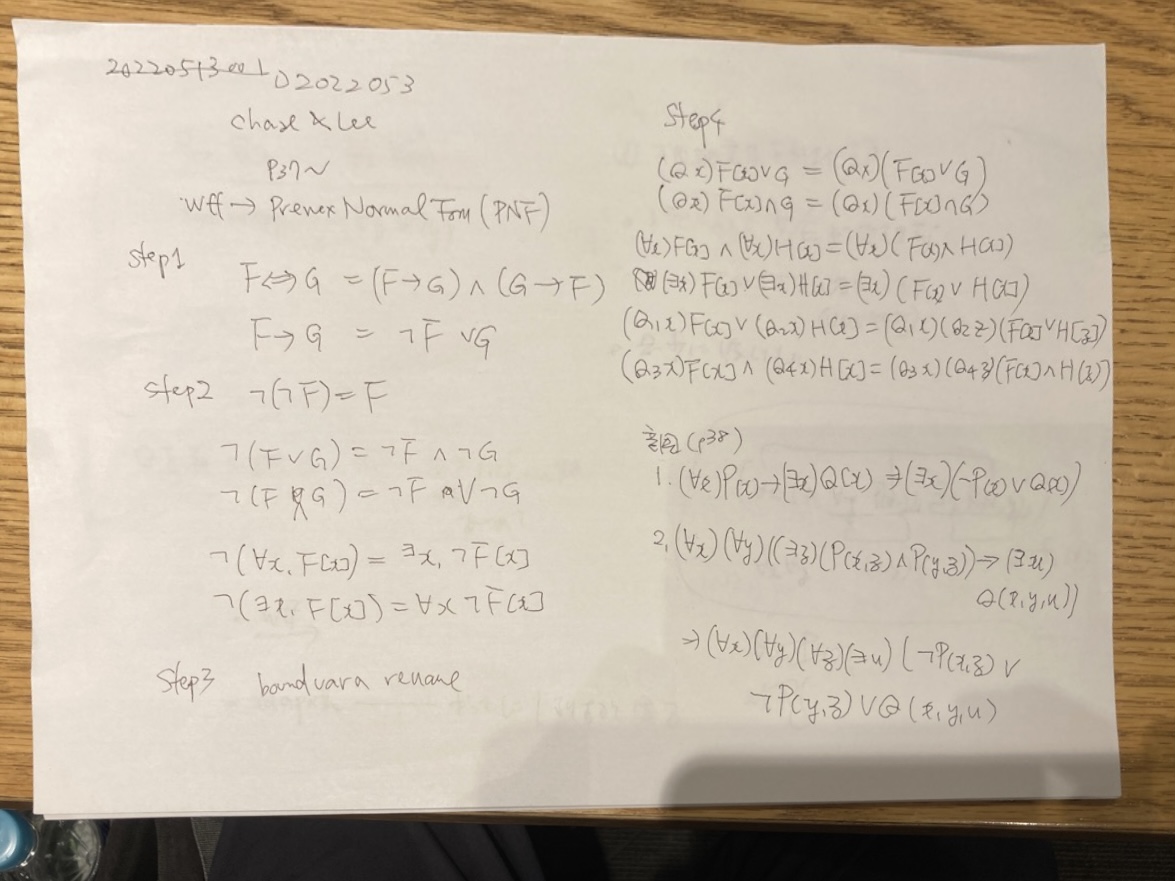 20220513001 D2022053
chase & Lee
P37~
wff → Prenex Normal Form (PNF)
step1
F⇔G = (F→G) ∧ (G→F)
F→G = ¬F ∨G
step2 ¬(¬F)=F
¬(F∨G) = ¬F ∧ ¬G
¬(F G) = ¬F ∨¬G
¬(∀x, F[x]) = ∃x, ¬F[x]
¬(∃x, F[x]) = ∀x ¬F[x]
Step3 band vara rename
Step4
(Qx)F[x]∨G = (Qx)(F[x]∨G)
(Qx) F[x]∧G = (Qx)(F[x]∧G)
(∀x)F[x] ∧ (∀x)H[x]=(∀x)(F[x]∧H[x])
(∃x)F[x]∨(∃x)H[x]=(∃x)(F[x]∨H[x])
(Q1x)F[x]∨(Q2x)H[x]=(Q1x)(Q2z)(F[x]∨H[z])
(Q3x)F[x]∧(Q4x)H[x]=(Q3x)(Q4z)(F[x]∧H[z])
(p38)
1. (∀x)P(x)→(∃x)Q(x) ⇒(∃x)(¬P(x)∨Q(x))
2, (∀x)(∀y)((∃z)(P(x,z)∧P(y,z))→(∃u)
Q(x,y,u))
⇒(∀x)(∀y)(∀z)(∃u)(¬P(x,z)∨
¬P(y,z)∨Q(x,y,u)